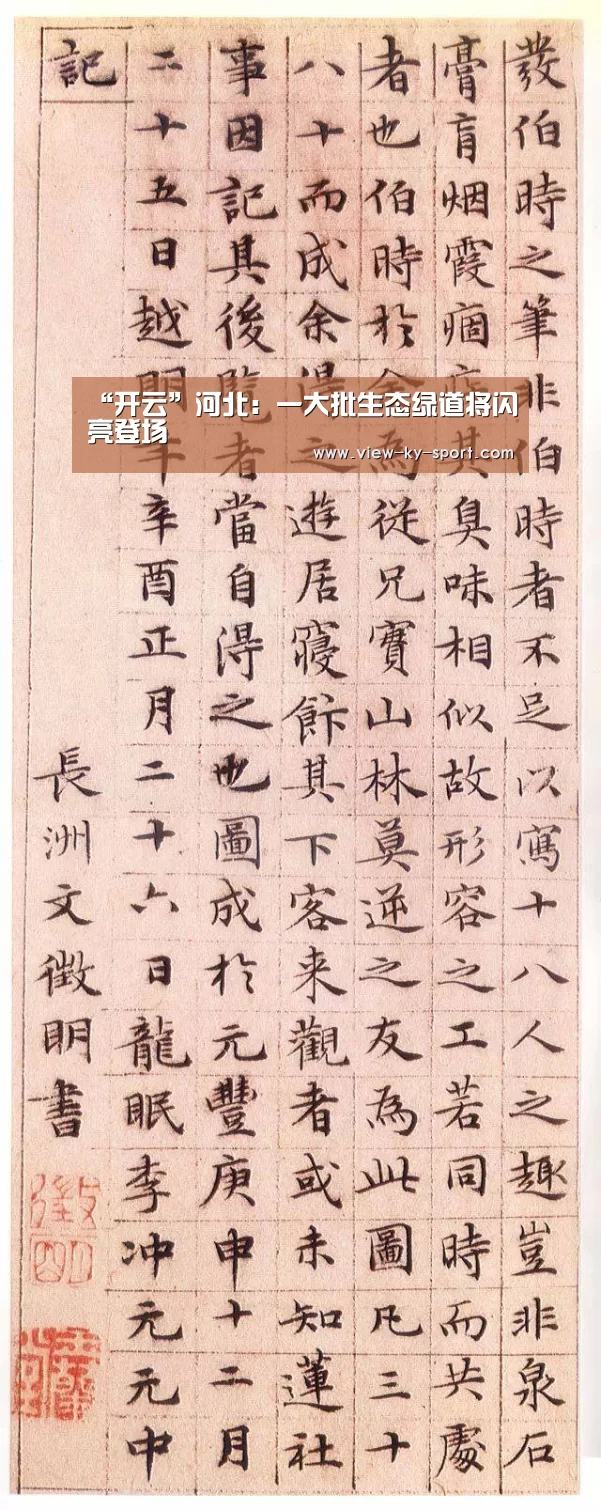 發伯時之筆非伯時者不足以寫十八人之趣豈非泉石
膏肓烟霞痼疾其臭味相似故形容之工若同時而共處
者也伯時於余為從兄實山林莫逆之友為此圖凡三十
八十而成余得之遊居寢飰其下客来觀者或未知蓮社
事因記其後覧者當自得之也圖成於元豐庚申十二月
二十五日越明年辛酉正月二十六日龍眠李冲元元中
記
長洲文徵明書
徵明
“开云”河北：一大批生态绿道将闪
亮登场
www.view-ky-sport.com